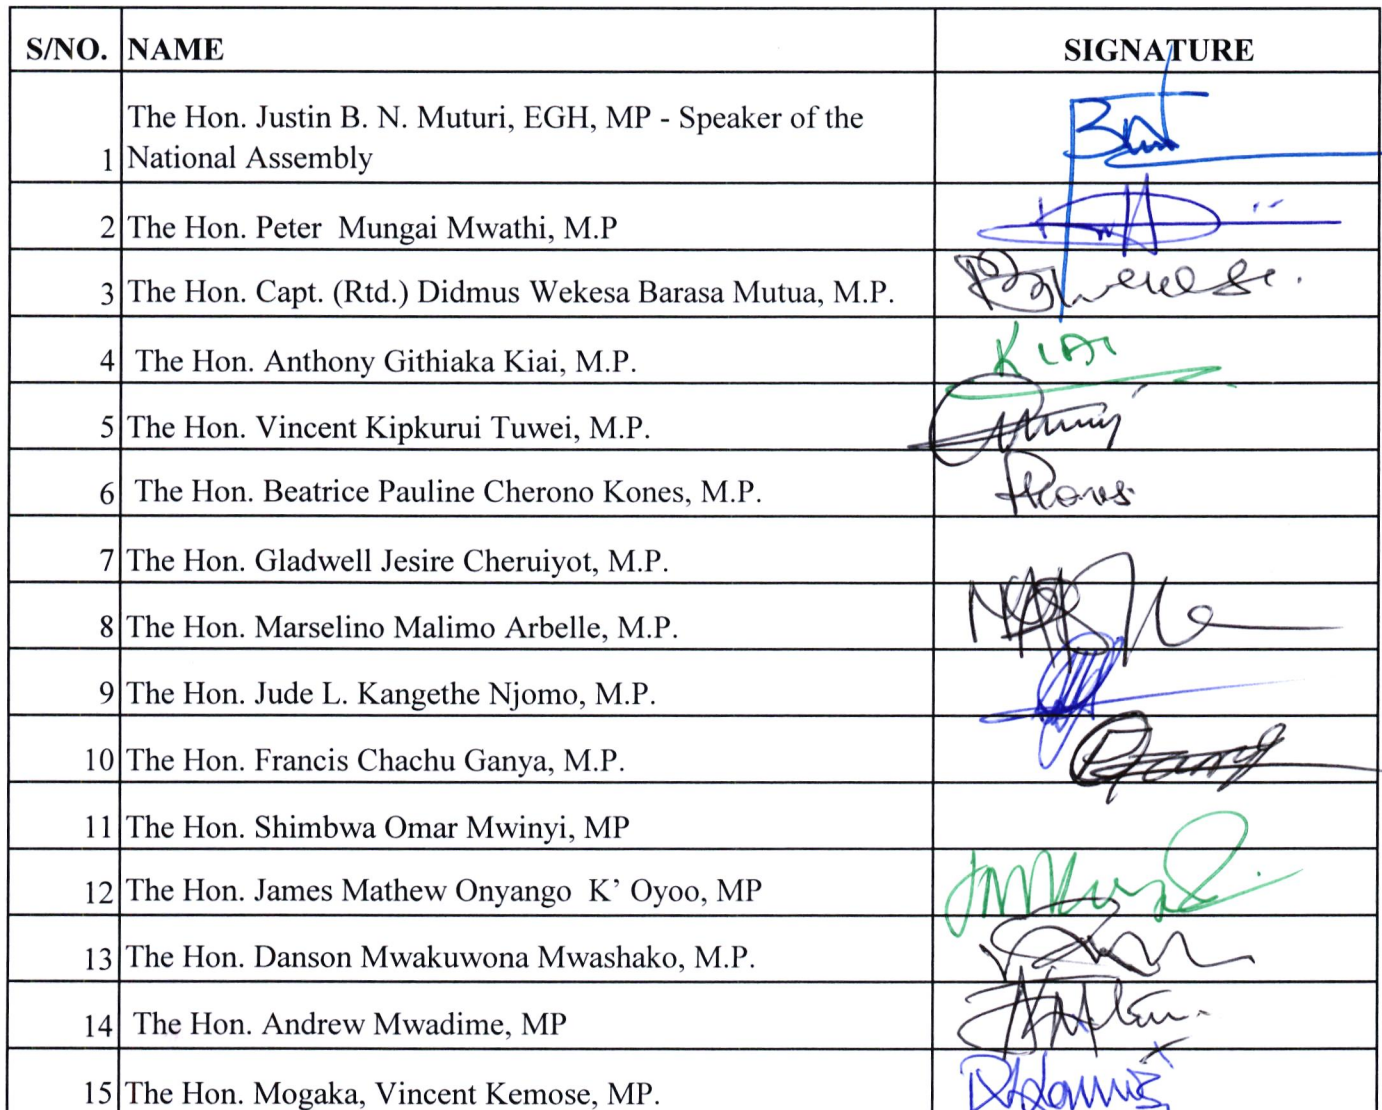 S/NO. NAME SIGNATURE
The Hon. Justin B. N. Muturi, EGH, MP - Speaker of the
1 National Assembly
2 The Hon. Peter Mungai Mwathi, M.P
3 The Hon. Capt. (Rtd.) Didmus Wekesa Barasa Mutua, M.P.
4 The Hon. Anthony Githiaka Kiai, M.P. KIAI
5 The Hon. Vincent Kipkurui Tuwei, M.P.
6 The Hon. Beatrice Pauline Cherono Kones, M.P.
7 The Hon. Gladwell Jesire Cheruiyot, M.P.
8 The Hon. Marselino Malimo Arbelle, M.P.
9 The Hon. Jude L. Kangethe Njomo, M.P.
10 The Hon. Francis Chachu Ganya, M.P.
11 The Hon. Shimbwa Omar Mwinyi, MP
12 The Hon. James Mathew Onyango K' Oyoo, MP
13 The Hon. Danson Mwakuwona Mwashako, M.P.
14 The Hon. Andrew Mwadime, MP
15 The Hon. Mogaka, Vincent Kemose, MP.